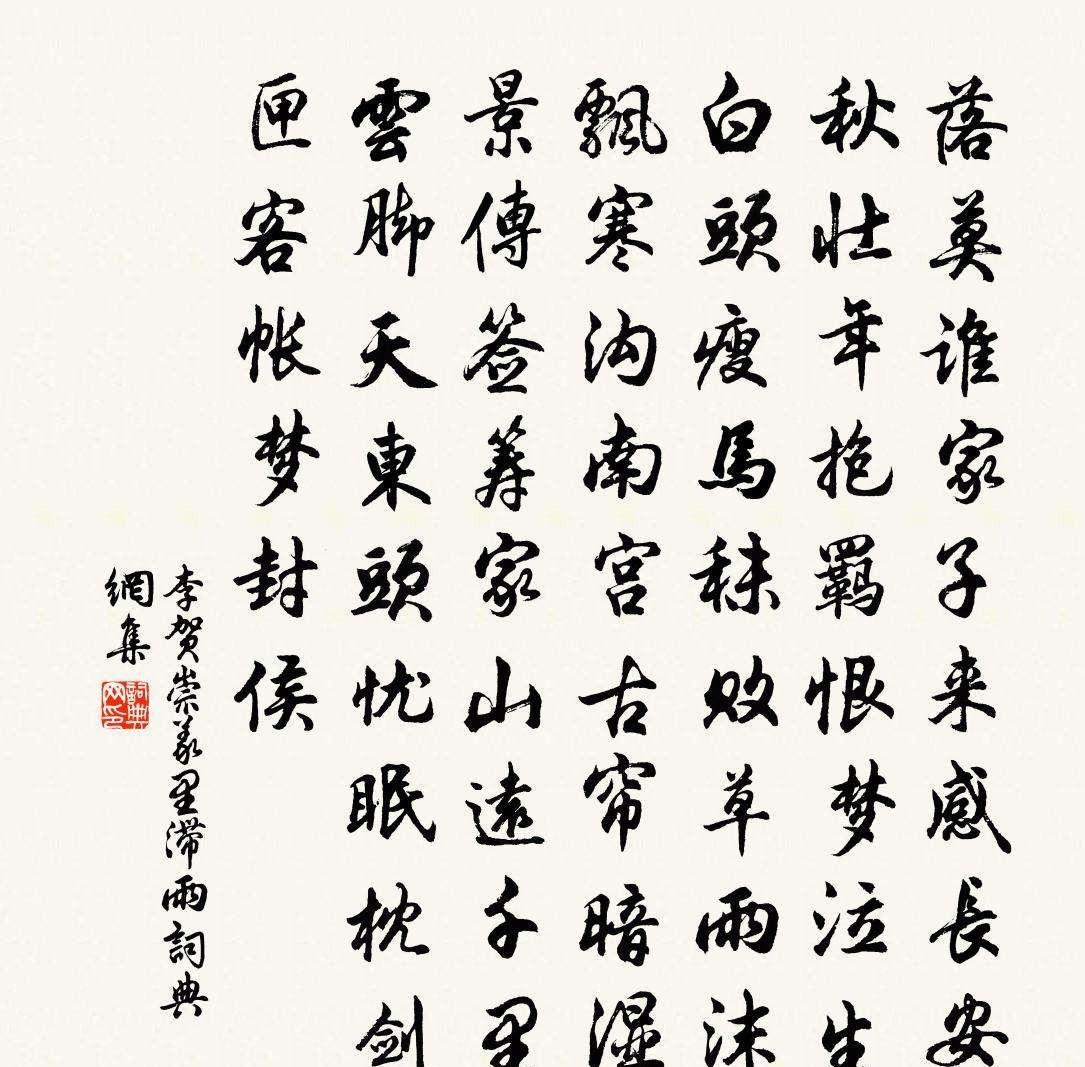 落莫谁家子来感長安
秋壮年抱羁恨梦泣生
白頭瘦馬秣败草雨沫
飄寒沟南宫古帘暗湿
景傳签筹家山遠千里
雲脚天東頭忧眠枕剑
匣客帐梦封侯
李贺崇义里滞雨詞典
網集